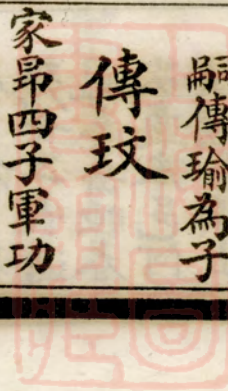 嗣傳瑜為子
傳玟
家昂四子軍功